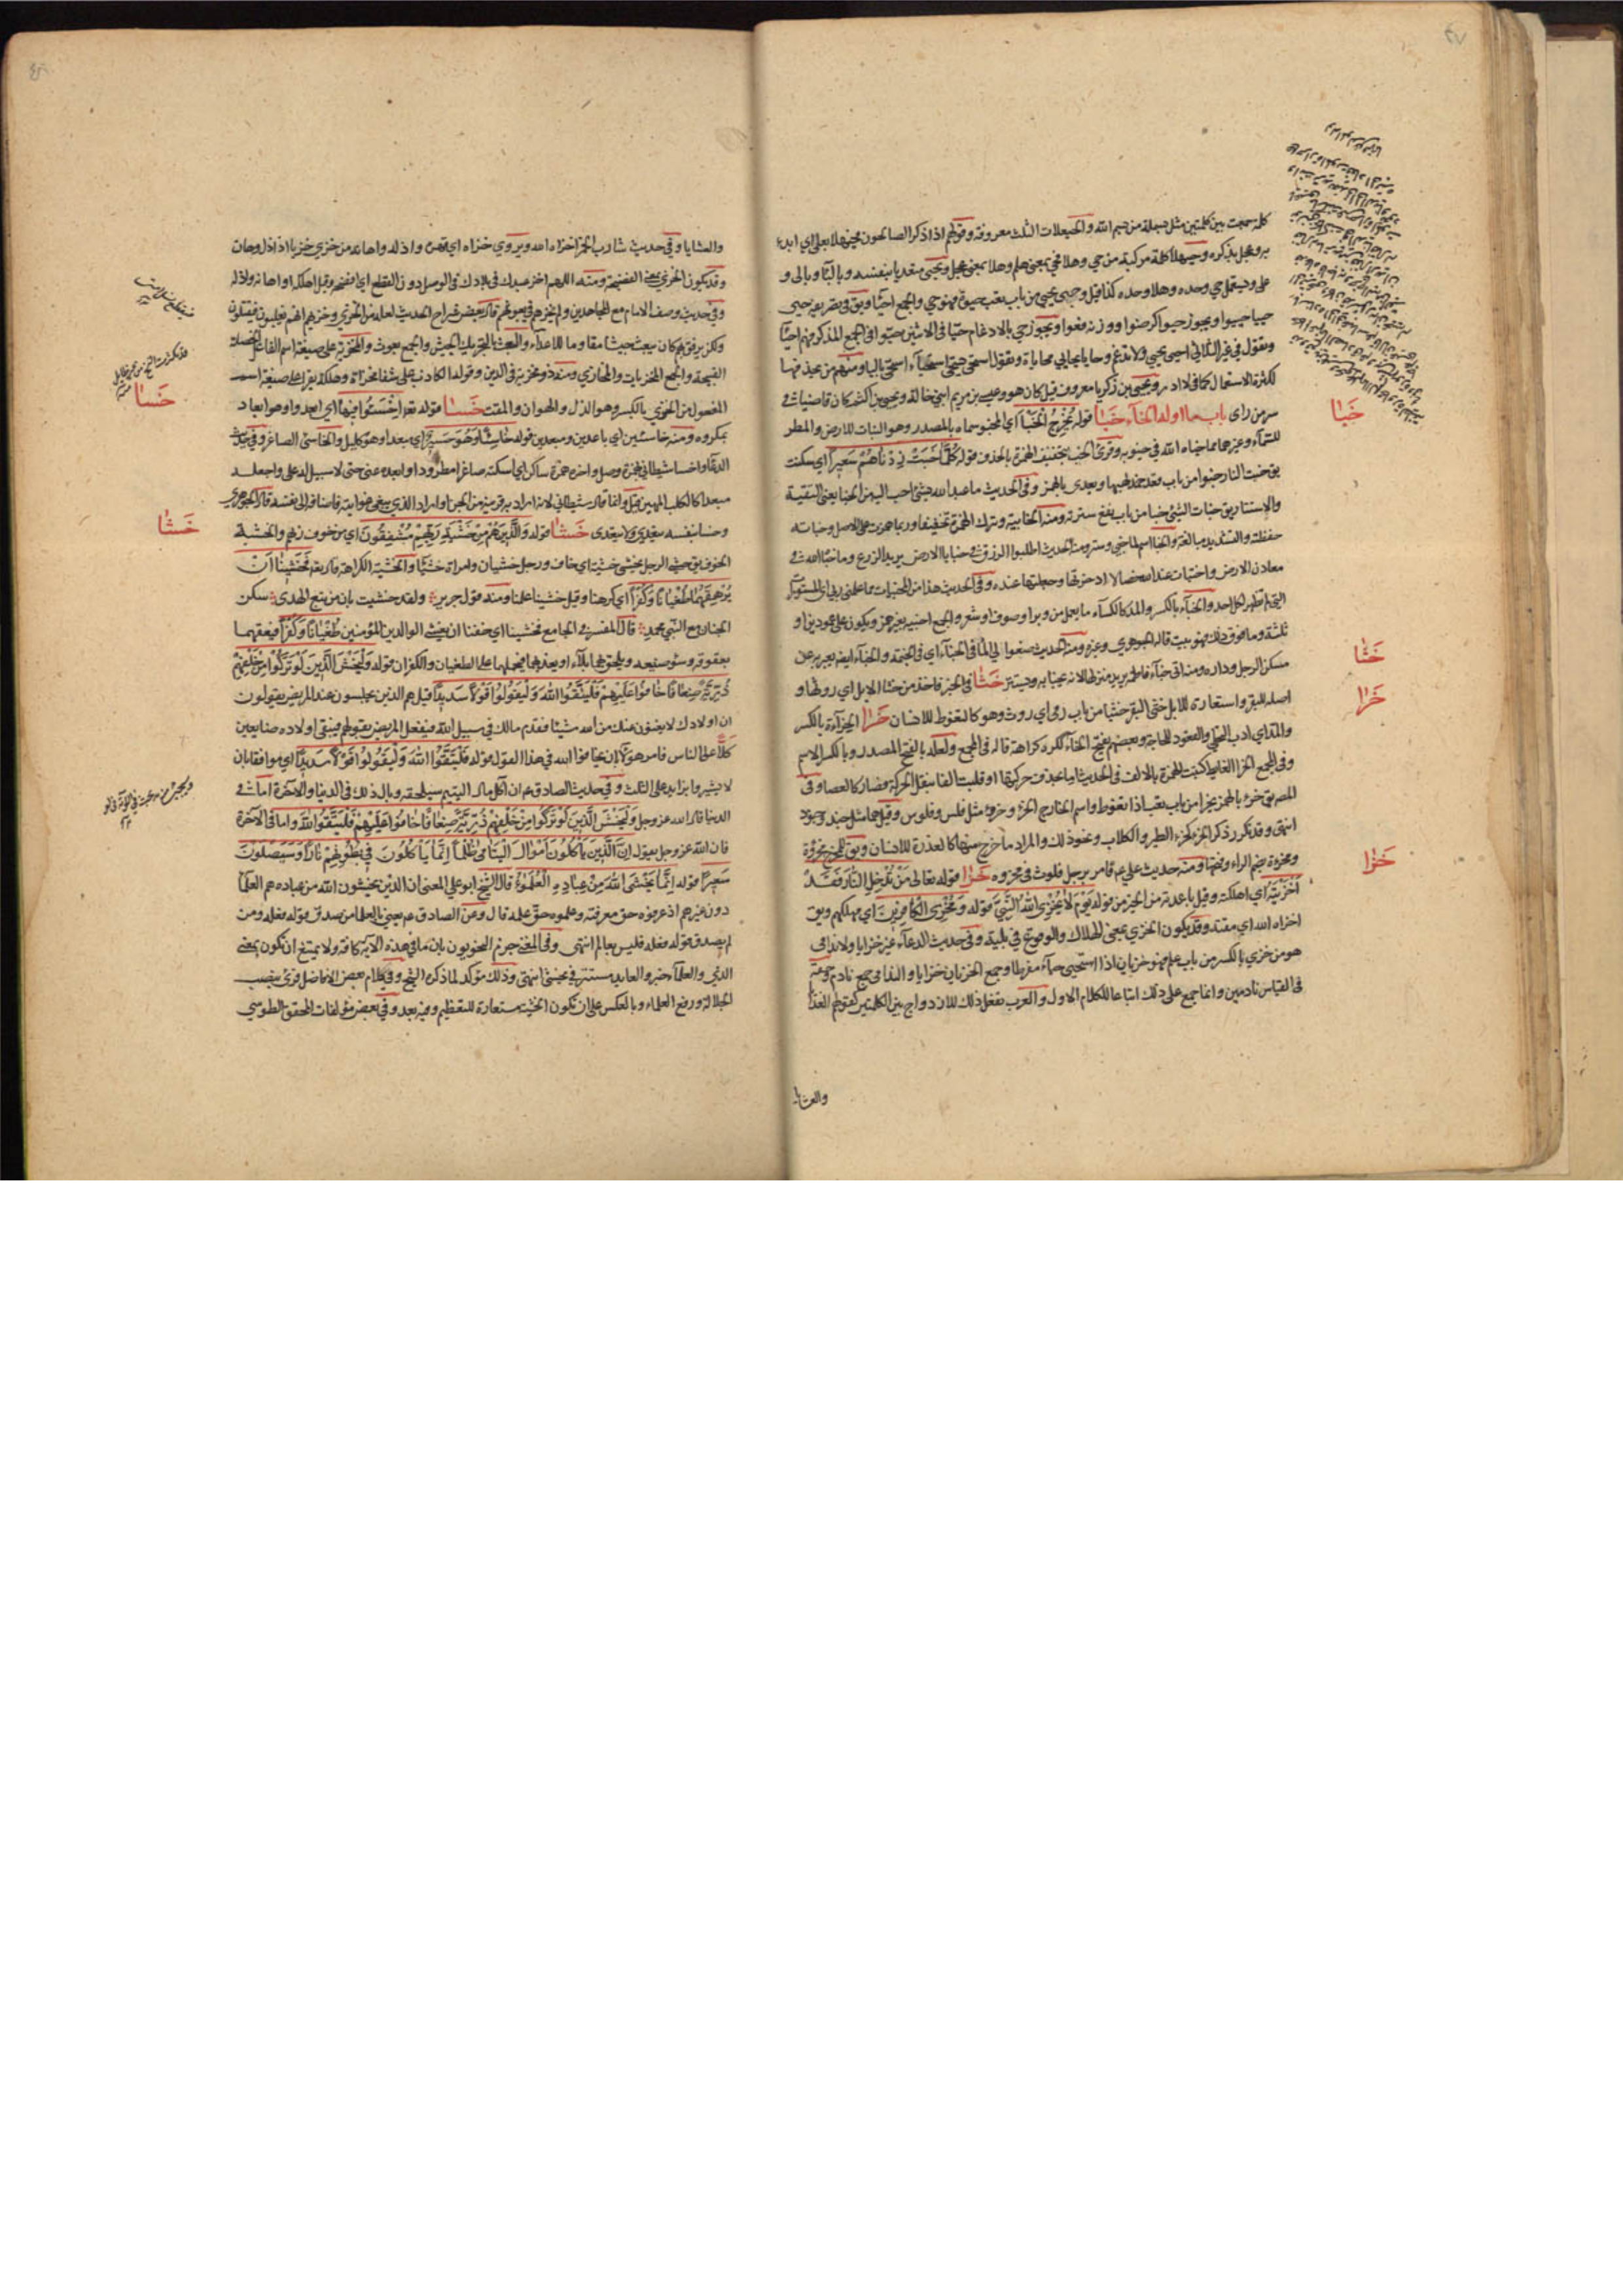 كلمة جمعت بين كلمتين مثل بسملة من بسم الله والحيعلات الثلث معروفة وقولهم اذا ذكر الصالحون فحيهلا بعلي اي ابدء
به وعجل بذكره وحيهلا كلمة مركبة من حي وهلا فحي بمعنى هلم وهلا بمعنى عجل ويجئ متعديا بنفسه وبالباء وبالى و
على ويستعمل حي وحده وهلا وحده كذا قيل وحيي يحيى من باب تعب حيوة فهو حي والجمع احياء
حييا حييوا ويجوز حيوا كرضوا ووزنه فعوا ويجوز حي بالادغام حيا في الاثنين حيوا في الجمع المذكر فهم احياء
وتقول في غير الثلاثي احيى يحيي ولا تدغم وحايا يحايي محاياة وتقول استحيى يستحيي استحياء
لكثرة الاستعمال كما في لا ادر ويحيى بن زكريا معروف قيل كان هو وعيسى بن مريم ابني خالة ويحيى بن اكثم كان قاضيا في
سر من راى باب ما اوله الخاء خبا قوله يخرج الخبأ اي المخبو سماه بالمصدر وهو النبات للارض والمطر
للسماء وغيرهما مما خباه الله في غيوبه وقرئ الخب بتخفيف الهمزة بالحذف قوله كلما خبت زدناهم سعيرا اي سكنت
يق خبت النار خبوا من باب قعد خمد لهبها ويعدى بالهمز وفي الحديث ما عبد الله بشئ احب اليه من الخبا يعني التقية
والاستتار يق خبات الشئ خبا من باب نفع سترته ومنه الخابية وترك الهمزة تخفيفا وربما همزت على الاصل وخباته
حفظته والتشديد مبالغة والخبا اسم لما خبي وستر ومنه الحديث اطلبوا الرزق في خبايا الارض يريد الزرع وما خباه الله في
معادن الارض واختبات عند الله خصالا ادخرتها وجعلتها عنده وفي الحديث هذا من المخبيات مما علمني ربي اي المستورات
التي لم تظهر لكل احد والخباء بالكسر والمد كالكساء ما يعمل من وبر او صوف او شعر والجمع اخبية بغير همز ويكون على عمودين او
ثلثة وما فوق ذلك فهو بيت قاله الجوهري وغيره ومنه الحديث ضعوا لي الماء في الخباء اي في الخيمة والخباء ايضا يعبر به عن
مسكن الرجل وداره ومنه اتى خباء فاطمة يريد منزلها لانه يخبا به ويستتر خثا في الخبر فاخذ من خثا الابل اي روثها و
اصله للبقر واستعاره للابل خثى البقر خثيا من باب رمى اي روث وهو كالتغوط للانسان خرا الخراءة بالكسر
والمد اي ادب التخلي والقعود للحاجة وبعضهم بفتح الخاء ككره كراهة قاله في المجمع ولعله بالفتح المصدر وبالكسر الاسم
وفي المجمع الخرا الغايط كتبت الهمزة بالالف في الحديث اما بحذف حركتها او قلبت الفا بنقل الحركة فصار كالعصا وفي
المص يق خرئ بالهمز يخرا من باب تعب اذا تغوط واسم الخارج الخرؤ وخروء مثل فلس وفلوس وقيل هما مثل جند وجنود
انتهى وقد تكرر ذكر الخرؤ كخرء الطير والكلاب ونحو ذلك والمراد ما خرج منها كالعذرة للانسان ويق للمخرج مخروة
ومخروة بضم الراء وفتحها ومنه حديث علي ع قامر برجل فلوث في مخروه خزا قوله تعالى من تدخل النار فقد
اخزيته اي اهلكته وقيل باعدته من الخير من قوله يوم لا يخزي الله النبي قوله ومخزي الكافرين اي مهلكهم ويق
اخزاه الله اي مقته وقد يكون الخزي بمعنى الهلاك والوقوع في بلية وفي حديث الدعاء غير خزايا ولا ندامى
هو من خزي بالكسر من باب علم فهو خزيان اذا استحيى حياء مفرطا وجمع الخزيان خزايا والندامى جمع نادم وحقه
في القياس نادمين وانما جمع على ذلك اتباعا للكلام الاول والعرب تفعل ذلك للازدواج بين الكلمتين كقولهم الغدايا
والعشايا
خبا
خثا
خرا
خزا
والعشايا وفي حديث شارب الخمر اخزاه الله ويروى خزاه اي قهره واذله واهانه من خزي خزيا اذا ذل وهان
وقد يكون الخزي بمعنى الفضيحة ومنه اللهم اخز عبدك في بلادك في الوصل دون القطع اي افضحه وقيل اهلكه او اهانه واذله
وفي حديث وصف الامام مع المجاهدين ولم يخزهم في بعوثهم قال بعض شراح الحديث لعله من الخزي وخزيهم انهم يغلبون فيقتلون
ولكن برفق بهم كان يبعث جيشا مقاوما للاعداء والبعث بالتحريك الجيش والجمع بعوث والمخزية على صيغة اسم الفاعل الخصلة
القبيحة والجمع المخزيات والمخازي ومنه ذو مخزية في الدين وقوله الكاذب على شفا مخزاة وهلكة يقرا على صيغة اسم
المفعول من الخزي بالكسر وهو الذل والهوان والمقت خسا قوله تع اخسئوا فيها اي ابعدوا وهو ابعاد
بمكروه ومنه خاسئين اي باعدين ومبعدين قوله خاسئا وهو حسير اي مبعدا وهو كليل والخاسئ الصاغر وفي حديث
الدعاء واخسا شيطاني بهمزة وصل واخره همزة ساكن اي اسكته صاغرا مطرودا وابعده عني حتى لا سبيل له علي واجعله
مبعدا كالكلب المهين قيل وانما قال شيطاني لانه اراد به قرينه من الجن او اراد الذي يبغي غوايته فاضافه الى نفسه قال الجوهري
وخسا بنفسه يتعدى ولا يتعدى خشا قوله والذين هم من خشية ربهم مشفقون اي من خوف ربهم والخشية
الخوف يق خشي الرجل يخشى خشية اي خاف ورجل خشيان وامراة خشيا والخشية الكراهة قال تع فخشينا ان
يرهقهما طغيانا وكفرا اي كرهنا وقيل خشينا علمنا ومنه قول جرير ولقد خشيت بان من تبع الهدى سكن
الجنان مع النبي محمد قال المفسر في الجامع فخشينا اي خفنا ان يغشي الوالدين المؤمنين طغيانا وكفرا فيعقهما
بعقوقه وسوء صنيعه ويلحق بهما بلاء او يعذبهما فيحملهما على الطغيان والكفران قوله وليخش الذين لو تركوا من خلفهم
ذرية ضعافا خافوا عليهم فليتقوا الله وليقولوا قولا سديدا قيل هم الذين يجلسون عند المريض يقولون
ان اولادك لا يغنون عنك من الله شيئا فقدم مالك في سبيل الله فيفعل المريض بقولهم فيبقى اولاده ضايعين
كلا على الناس فامر هؤلاء بان يخافوا الله في هذا القول قوله فليتقوا الله وليقولوا قولا سديدا اي موافقا بان
لا يشيروا بزايد على الثلث وفي حديث الصادق ع ان آكل مال اليتيم سيلحقه وبال ذلك في الدنيا والآخرة اما في
الدنيا قال الله عز وجل وليخش الذين لو تركوا من خلفهم ذرية ضعافا خافوا عليهم فليتقوا الله واما في الآخرة
فان الله عز وجل يقول ان الذين ياكلون اموال اليتامى ظلما انما ياكلون في بطونهم نارا وسيصلون
سعيرا قوله انما يخشى الله من عباده العلموء قال الشيخ ابو علي المعنى ان الذين يخشون الله من عباده هم العلماء
دون غيرهم اذ عرفوه حق معرفته وعلموه حق علمه قال وعن الصادق ع يعني بالعلماء من صدق قوله فعله ومن
لم يصدق قوله فعله فليس بعالم انتهى وفي المغني جزم النحويون بان ما في هذه الآية كافة ولا يمتنع ان تكون بمعنى
الذي والعلماء خبر والعايد مستتر في يخشى انتهى وذلك مؤكد لما ذكره الشيخ وفي كلام بعض الافاضل قرئ بنصب
الجلالة ورفع العلماء وبالعكس على ان تكون الخشية مستعارة للتعظيم وفيه بعد وفي بعض مؤلفات المحقق الطوسي
خسا
خشا